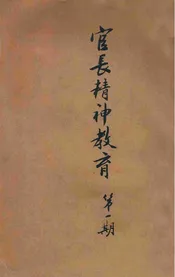 官長精神教育 第一期